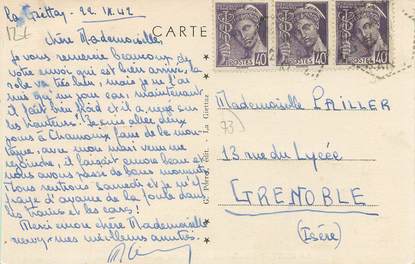 La Giettaz 22 IX 42
CARTE
Chère Mademoiselle,
Je vous remercie beaucoup de
votre envoi qui est bien arrivé, la
robe va très bien, mais je ne l'ai
mis qu'un jour car, maintenant
il fait bien froid et il a neigé sur
les hauteurs! Je suis allée deux
jours à Chamonix faire de la mon-
tagne, avec mon mari venu me
rejoindre, il faisait encore beau et
nous avons passé de bons moments
Nous rentrions samedi et je m'ef-
fraye d'avance de la foule dans
les trains et les cars!
Merci encore chère Mademoiselle
recevez mes meilleurs amitiés.
POSTES 40
POSTES 40
POSTES 40
Mademoiselle PAILLER
13 rue du Lycée
GRENOBLE
(Isère)
édit. - La Giettaz